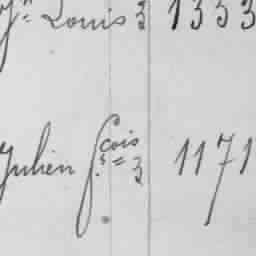 Jn Louis 3 1353
Julien fcois 3 1171